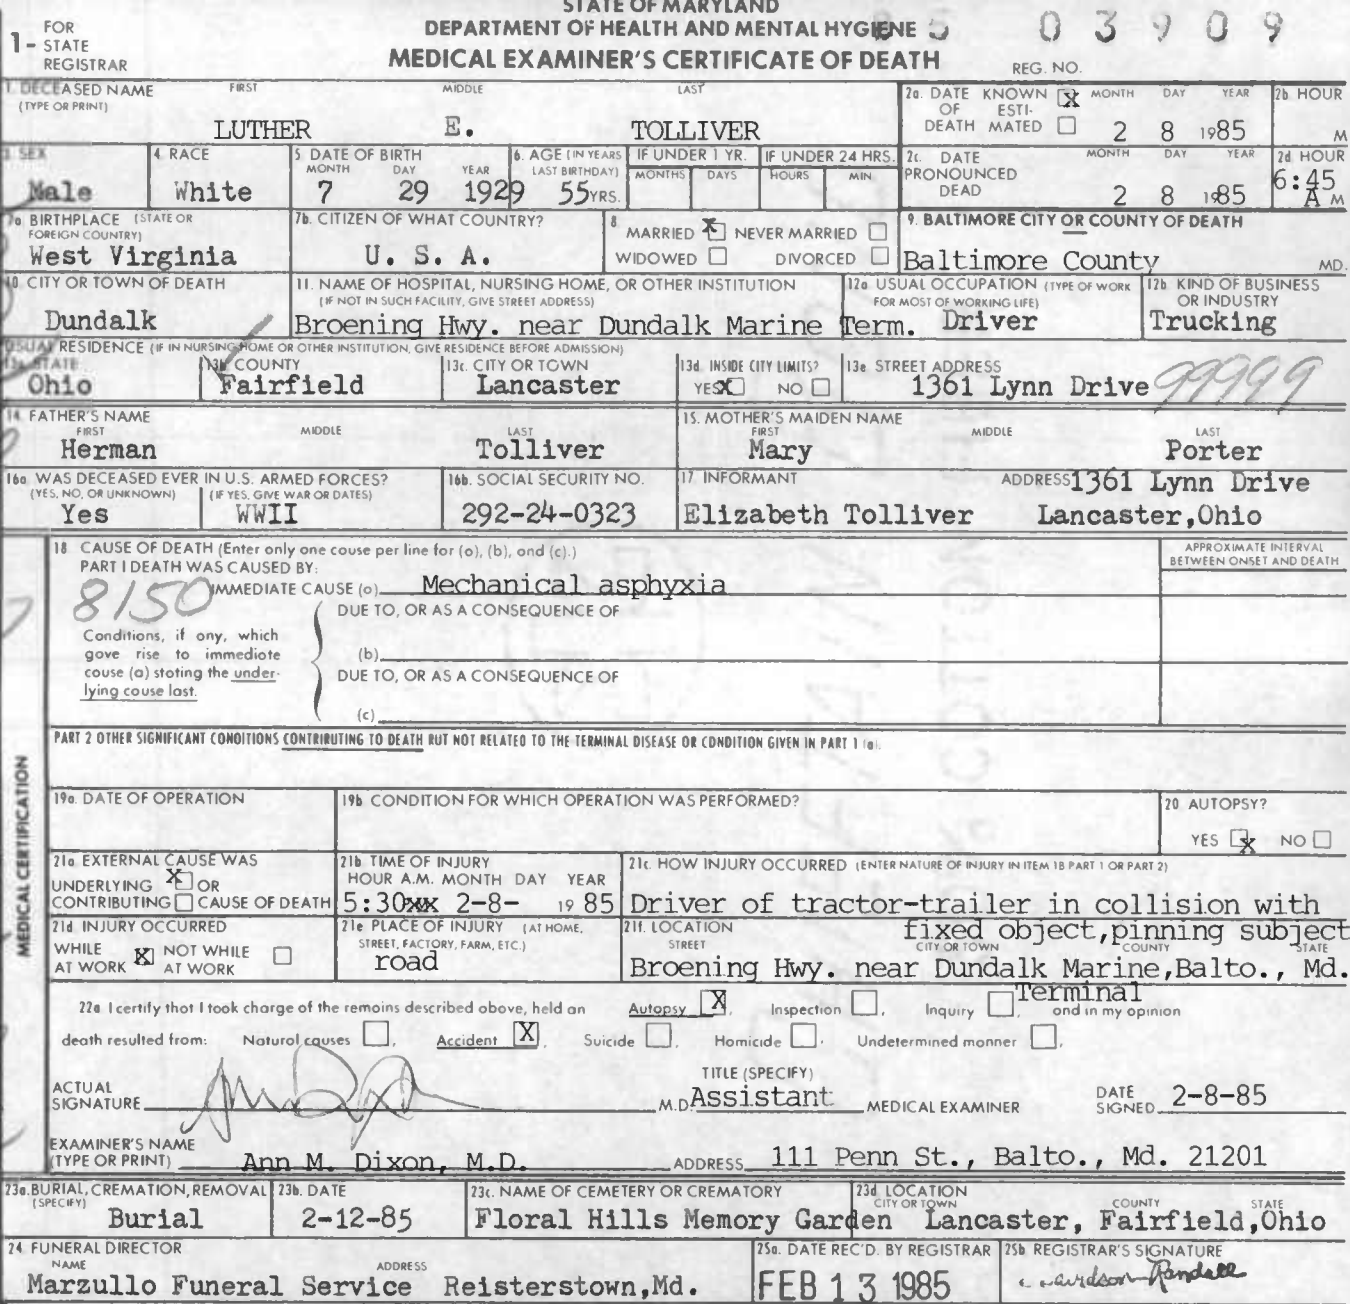 STATE OF MARYLAND
DEPARTMENT OF HEALTH AND MENTAL HYGIENE
MEDICAL EXAMINER'S CERTIFICATE OF DEATH
1- FOR STATE REGISTRAR
03909
REG. NO.
1. DECEASED NAME (TYPE OR PRINT) FIRST MIDDLE LAST
LUTHER E. TOLLIVER
2a. DATE OF DEATH KNOWN X ESTIMATED MONTH DAY YEAR
2 8 1985
2b HOUR
M
3. SEX
Male
4. RACE
White
5. DATE OF BIRTH MONTH DAY YEAR
7 29 1929
6. AGE (IN YEARS LAST BIRTHDAY)
55 YRS.
IF UNDER 1 YR. MONTHS DAYS
IF UNDER 24 HRS. HOURS MIN
2c. DATE PRONOUNCED DEAD MONTH DAY YEAR
2 8 1985
2d HOUR
6:45 A M
7a BIRTHPLACE (STATE OR FOREIGN COUNTRY)
West Virginia
7b. CITIZEN OF WHAT COUNTRY?
U. S. A.
8 MARRIED X NEVER MARRIED
WIDOWED DIVORCED
9. BALTIMORE CITY OR COUNTY OF DEATH
Baltimore County MD.
10. CITY OR TOWN OF DEATH
Dundalk
11. NAME OF HOSPITAL, NURSING HOME, OR OTHER INSTITUTION
(IF NOT IN SUCH FACILITY, GIVE STREET ADDRESS)
Broening Hwy. near Dundalk Marine Term.
12a USUAL OCCUPATION (TYPE OF WORK FOR MOST OF WORKING LIFE)
Driver
12b. KIND OF BUSINESS OR INDUSTRY
Trucking
USUAL RESIDENCE (IF IN NURSING HOME OR OTHER INSTITUTION, GIVE RESIDENCE BEFORE ADMISSION)
13a. STATE
Ohio
13b COUNTY
Fairfield
13c. CITY OR TOWN
Lancaster
13d INSIDE CITY LIMITS?
YES X NO
13e STREET ADDRESS
1361 Lynn Drive 99999
14. FATHER'S NAME
FIRST MIDDLE LAST
Herman Tolliver
15. MOTHER'S MAIDEN NAME
FIRST MIDDLE LAST
Mary Porter
16a. WAS DECEASED EVER IN U.S. ARMED FORCES?
(YES, NO, OR UNKNOWN) (IF YES, GIVE WAR OR DATES)
Yes WWII
16b. SOCIAL SECURITY NO.
292-24-0323
17 INFORMANT ADDRESS 1361 Lynn Drive
Elizabeth Tolliver Lancaster,Ohio
18 CAUSE OF DEATH (Enter only one cause per line for (a), (b), and (c).)
APPROXIMATE INTERVAL BETWEEN ONSET AND DEATH
PART I DEATH WAS CAUSED BY:
IMMEDIATE CAUSE (a) Mechanical asphyxia
8150
DUE TO, OR AS A CONSEQUENCE OF
Conditions, if any, which
gave rise to immediate
cause (a) stating the under-
lying cause last.
(b)
DUE TO, OR AS A CONSEQUENCE OF
(c)
PART 2 OTHER SIGNIFICANT CONDITIONS CONTRIBUTING TO DEATH BUT NOT RELATED TO THE TERMINAL DISEASE OR CONDITION GIVEN IN PART 1 (a).
MEDICAL CERTIFICATION
19a. DATE OF OPERATION
19b CONDITION FOR WHICH OPERATION WAS PERFORMED?
20 AUTOPSY?
YES X NO
21a EXTERNAL CAUSE WAS
UNDERLYING X OR
CONTRIBUTING CAUSE OF DEATH
21b TIME OF INJURY
HOUR A.M. MONTH DAY YEAR
5:30xx 2-8- 1985
21c. HOW INJURY OCCURRED (ENTER NATURE OF INJURY IN ITEM 18 PART 1 OR PART 2)
Driver of tractor-trailer in collision with
fixed object,pinning subject
21d INJURY OCCURRED
WHILE AT WORK X NOT WHILE AT WORK
21e PLACE OF INJURY (AT HOME, STREET, FACTORY, FARM, ETC.)
road
21f. LOCATION
STREET CITY OR TOWN COUNTY STATE
Broening Hwy. near Dundalk Marine,Balto., Md.
Terminal
22a I certify that I took charge of the remains described above, held an Autopsy X, Inspection , Inquiry , and in my opinion
death resulted from: Natural causes , Accident X, Suicide , Homicide , Undetermined manner ,
ACTUAL SIGNATURE M.D. TITLE (SPECIFY) Assistant MEDICAL EXAMINER DATE SIGNED 2-8-85
EXAMINER'S NAME (TYPE OR PRINT) Ann M. Dixon, M.D. ADDRESS 111 Penn St., Balto., Md. 21201
23a. BURIAL, CREMATION, REMOVAL (SPECIFY)
Burial
23b. DATE
2-12-85
23c. NAME OF CEMETERY OR CREMATORY
Floral Hills Memory Garden
23d LOCATION
CITY OR TOWN COUNTY STATE
Lancaster, Fairfield,Ohio
24 FUNERAL DIRECTOR
NAME ADDRESS
Marzullo Funeral Service Reisterstown,Md.
25a. DATE REC'D. BY REGISTRAR
FEB 13 1985
25b REGISTRAR'S SIGNATURE
Randall